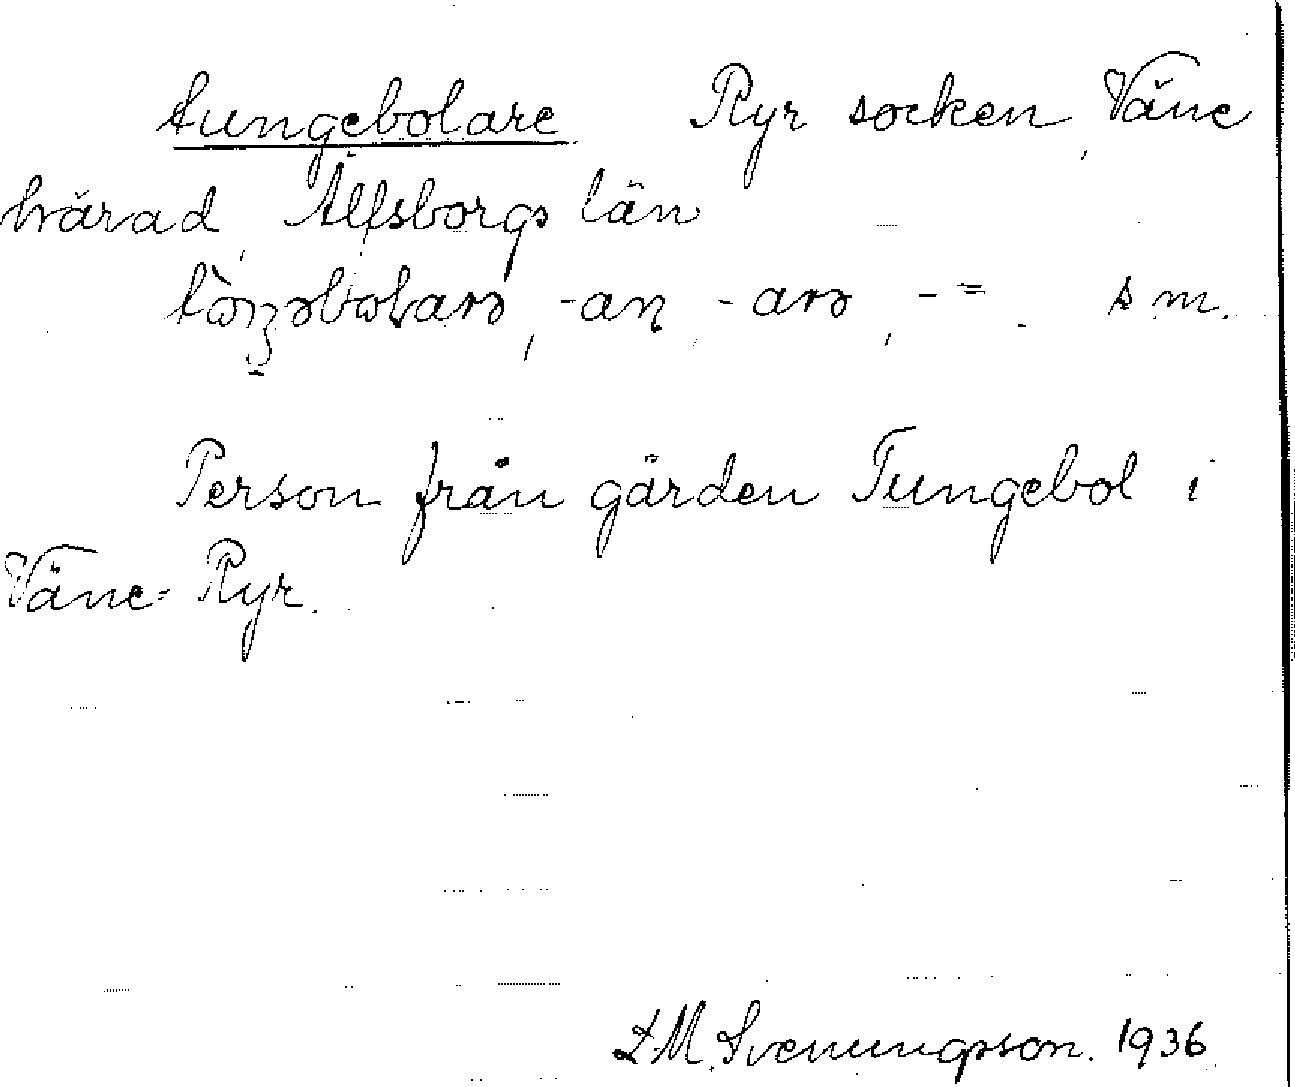 tungebolare Ryr socken, Väne
härad, Älfsborgs län
-an, -arə, -=. s m.
Person från gården Tungebol i
Väne-Ryr.
L.M. Svenungsson. 1936